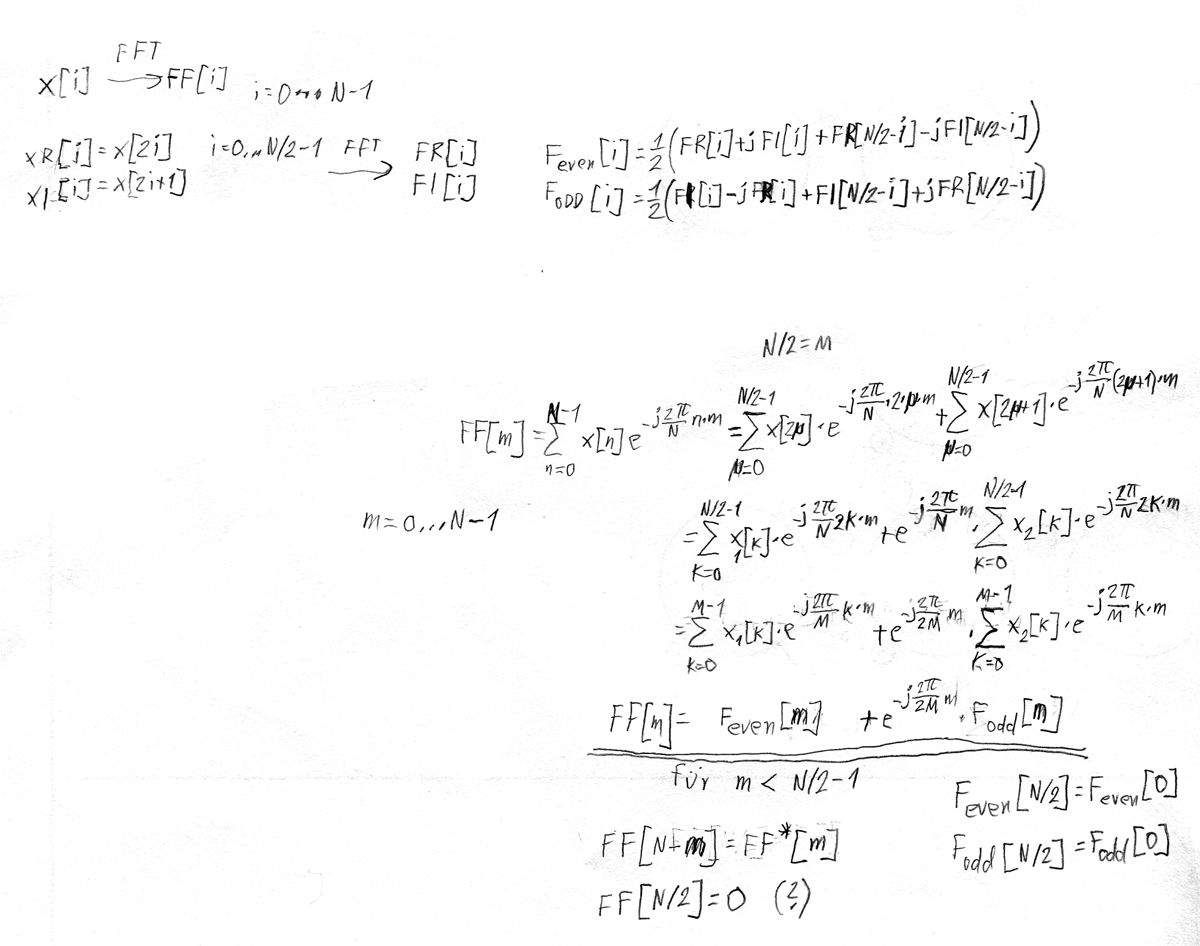 FFT
x[i] → FF[i] i=0...N-1
xR[i]=x[2i] i=0...N/2-1 FFT → FR[i] F_even[i]=1/2(FR[i]+jFI[i]+FR[N/2-i]-jFI[N/2-i])
xI[i]=x[2i+1] FI[i] F_ODD[i]=1/2(FI[i]-jFR[i]+FI[N/2-i]+jFR[N/2-i])
N/2=M
FF[m]=∑_{n=0}^{N-1} x[n]e^{-j 2π/N n·m}=∑_{μ=0}^{N/2-1} x[2μ]·e^{-j 2π/N ·2·μ·m}+∑_{μ=0}^{N/2-1} x[2μ+1]·e^{-j 2π/N (2μ+1)·m}
m=0...N-1 =∑_{k=0}^{N/2-1} x_1[k]·e^{-j 2π/N 2k·m}+e^{-j 2π/N m}·∑_{k=0}^{N/2-1} x_2[k]·e^{-j 2π/N 2k·m}
=∑_{k=0}^{M-1} x_1[k]·e^{-j 2π/M k·m}+e^{-j 2π/2M m}·∑_{k=0}^{M-1} x_2[k]·e^{-j 2π/M k·m}
FF[m]= F_even[m] +e^{-j 2π/2M m}·F_odd[m]
für m < N/2-1
F_even[N/2]=F_even[0]
FF[N-m]=FF*[m]
F_odd[N/2]=F_odd[0]
FF[N/2]=0 (?)